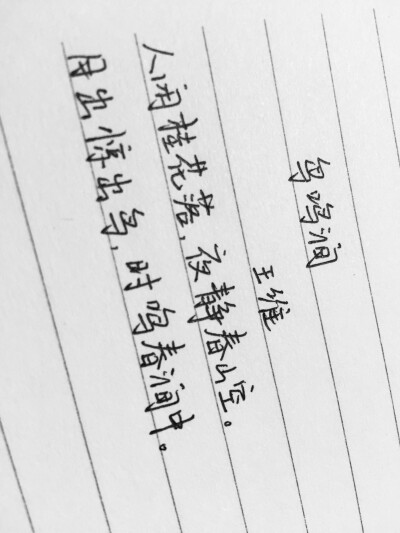 鸟鸣涧
王维
人闲桂花落,夜静春山空。
月出惊山鸟,时鸣春涧中。